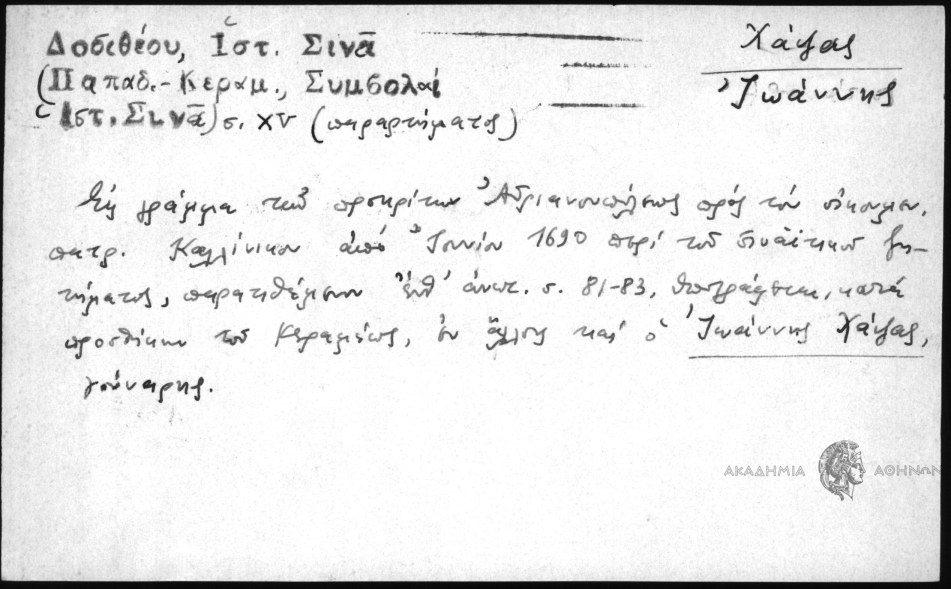 Δοσιθέου, Ἱστ. Σινᾶ
(Παπαδ.-Κεραμ., Συμβολαί
Ἱστ. Σινᾶ) σ. XV (παραρτήματος)
Χάψας
Ἰωάννης
Εἰς γράμμα τῶν προκρίτων Ἀδριανουπόλεως πρός τόν οἰκουμεν.
πατρ. Καλλίνικον ἀπό Ἰουνίου 1690 περί τοῦ σιναϊτικοῦ ζη-
τήματος, παρατιθέμενον ἀνωτ. σ. 81-83, ὑπογράφεται, κατά
προσθήκην τοῦ Κεραμέως, ἐν ἄλλοις καί ὁ Ἰωάννης Χάψας,
γούναρης.
ΑΚΑΔΗΜΙΑ ΑΘΗΝΩΝ